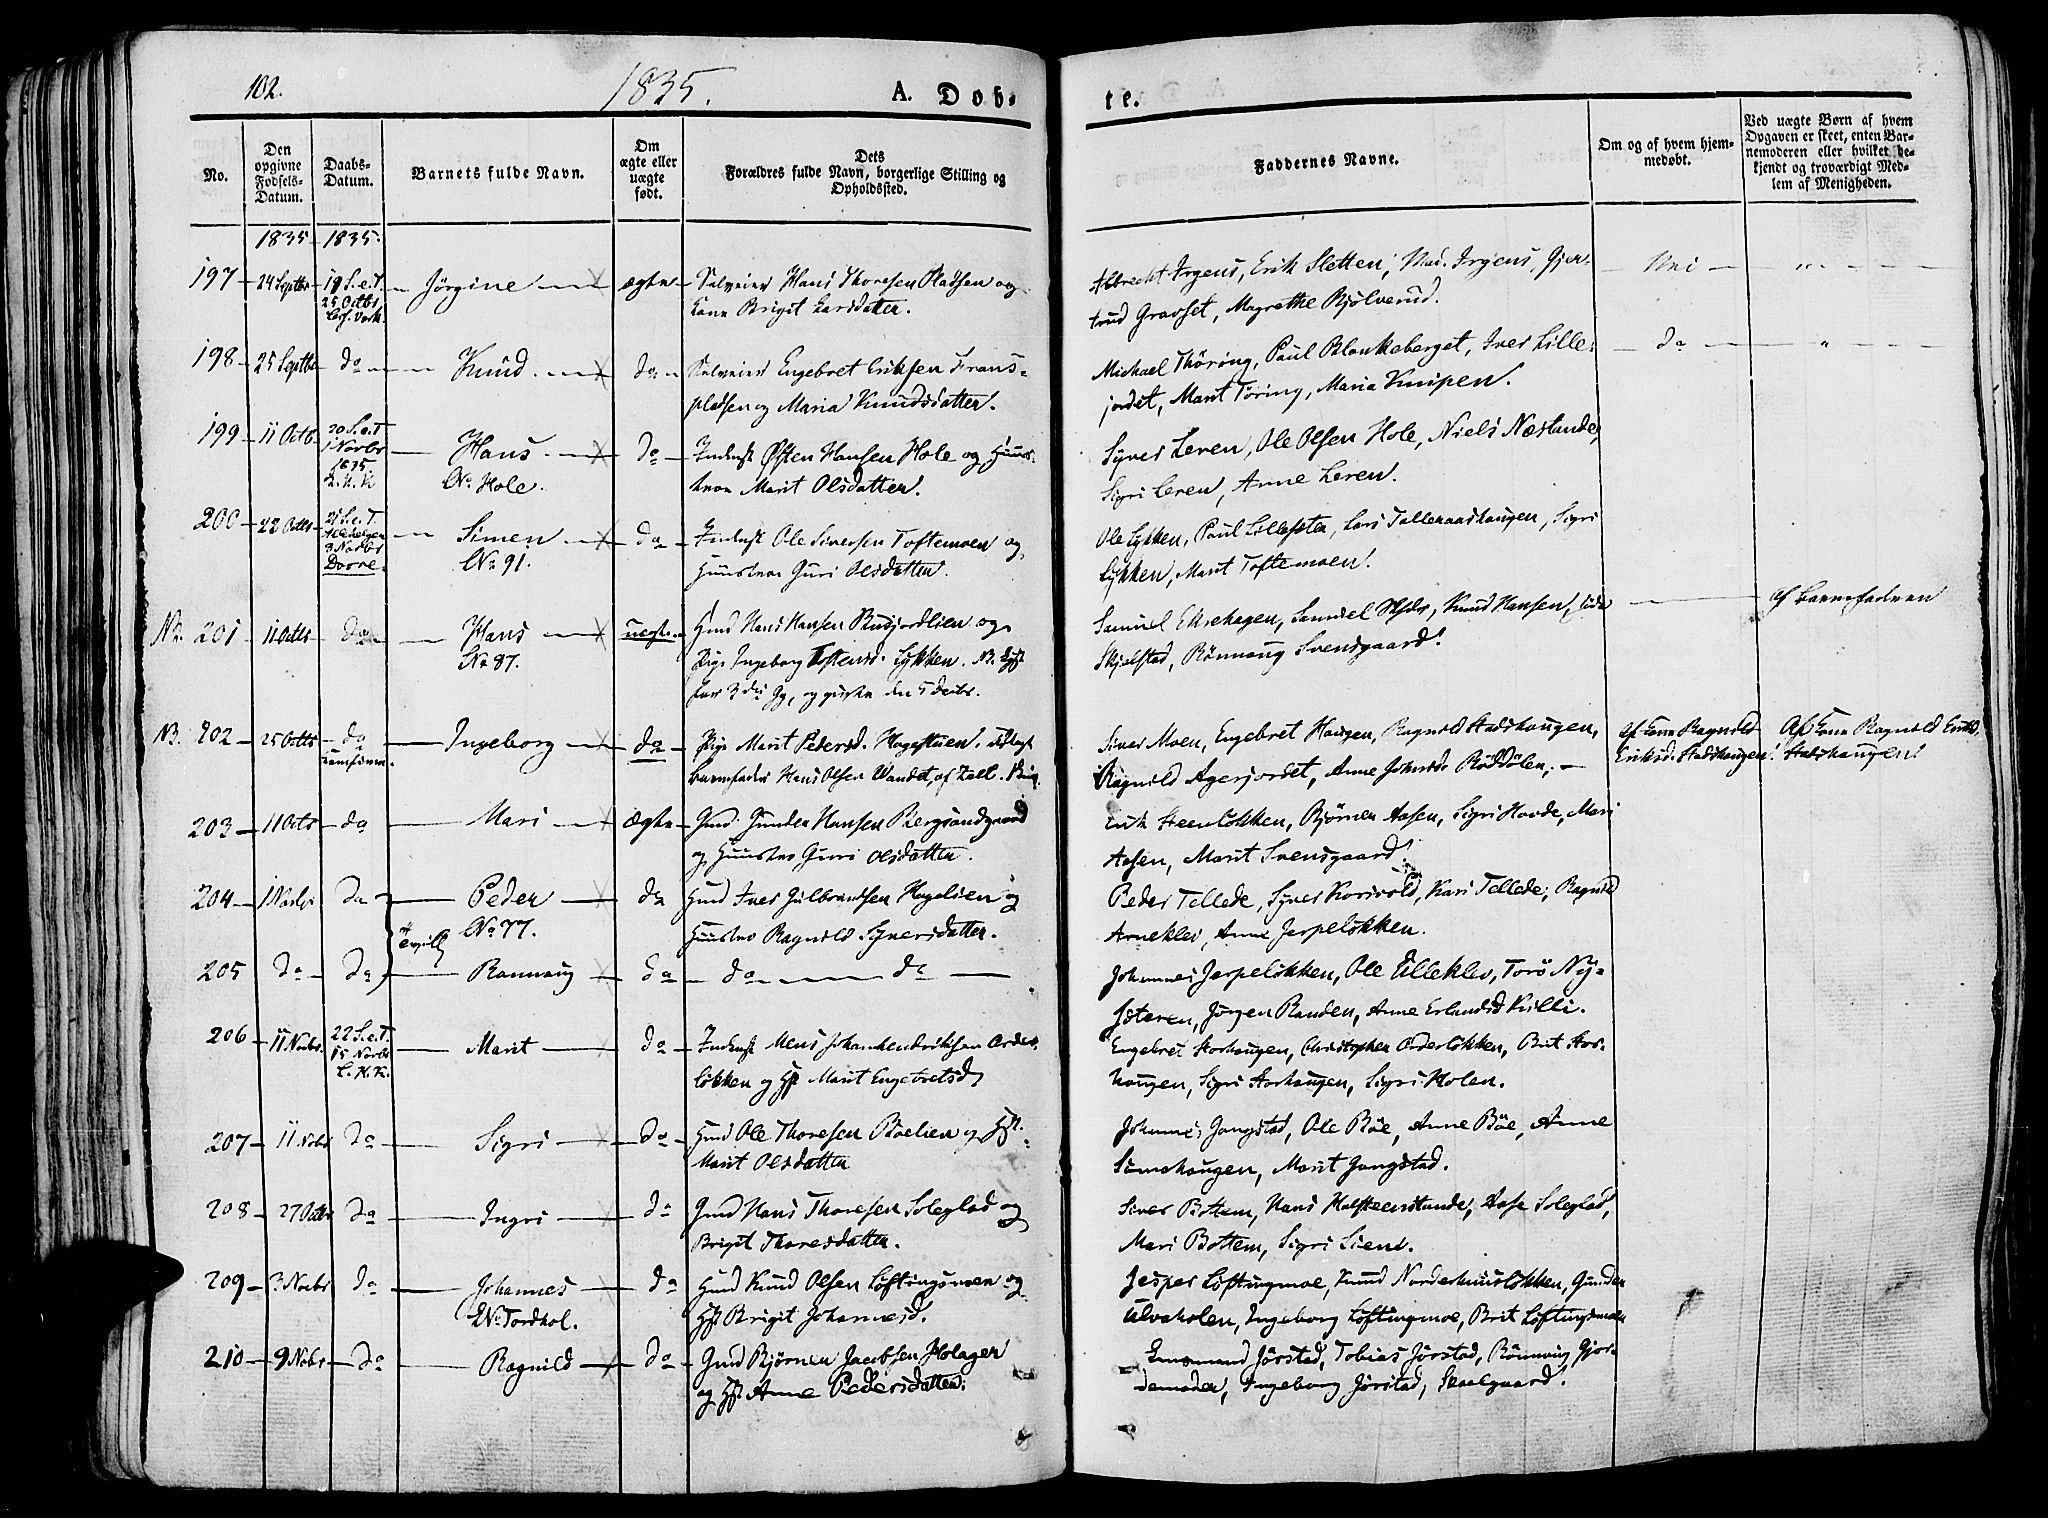 102.
1835.
A. Dob-
te.
No.
Den opgivne Fødsels-Datum.
Daabs-Datum.
Barnets fulde Navn.
Om ægte eller uægte født.
Dets Forældres fulde Navn, borgerlige Stilling og Opholdssted.
Faddernes Navne.
Om og af hvem hjem-
medøbt.
Ved uægte Børn af hvem
Opgaven er skeet, enten Bar-
nemoderen eller hvilket be-
kjendt og troværdigt Med-
lem af Menigheden.
1835 1835.
197 24 Septbr 19 S.e.T. 25 Octbr Jörgine ægte Hans Thoresen Pladsen og
Kone Brigit Larsdatter.
Albrecht Irgens, Erik Sletten, Mad. Irgens, Gjer-
trud Gravset, Magrethe Bjölverud.
Nei
198 25 Septbr do Knud do Engebret Eriksen Frans-
pladsen og Maria Knudsdatter.
Michael Thöring, Paul Blankeberget, Iver Lille-
jordet, Marit Töring, Maria Knipen.
do
199 11 Octb. 20 S.e.T. 1 Novbr 1835. Hans No Hole. do Inderst Østen Hansen Hole og Huus-
kone Marit Olsdatter.
Syver Leren, Ole Olsen Hole, Niels Næslande,
Sigri Leren, Anne Leren.
200 22 Octbr 21 S.e.T. Allehelgen Novbr Dovre. Simen No 91. do Inderst Ole Siversen Toftemoen og
Huuskone Guri Olsdatter.
Ole Lykken, Paul Lilleseter, Lars Talleraashaugen, Sigri
Lykken, Marit Toftemoen.
201 11 Octbr do Hans No 87. uægte Hans Hansen Rusjordlien og
Pige Ingeborg Toftensd. Lykken. NB.
3die Gg, og den 5 Decbr.
Samuel Ekrehagen, Knud Hansen,
Skjelstad, Rönnaug Svensgaard.
af Barnefaderen
NB. 202 25 Octbr do Ingeborg do Pige Marit Pedersd. Hagestuen. udlagt
Barnefader Hans Olsen
Siver Moen, Engebret Haugen, Ragnild Stadshaugen,
Ragnild Agerjordet, Anne Röddölen.
Af Kone Ragnild
Eriksd. Stadshaugen.
Af Kone Ragnild Eriksd.
Stadshaugen.
203 11 Octbr do Mari ægte Gmd. Gunder Hansen
og Huuskone Guri Olsdatter.
Erik Steenlökken, Björner Aasen, Sigri Hovde, Mari
Aasen, Marit Svensgaard.
204 1 Novbr do Peder No 77. do Hmd Iver Gulbrandsen Hagelien og
Huuskone Ragnild Syversdatter.
Peder Tellede, Syver Korsvold, Kari Tellede, Ragnild
Arneklev, Anne Jerpelökken.
205 do do Rannaug do do do
Johannes Jerpelökken, Ole Ulleklev, Torö Ny-
sæteren, Jörgen Randen, Anne Erlandsd Killi.
206 11 Novbr. 22 S.e.T. 15 Novbr L.K.K. Marit do Inderst Mens Johan Hendriksen Order-
lökken og Hst Marit Engebretsd
Engebret Storhaugen, Christopher Orderlökken, Brit Stor-
haugen, Sigri Storhaugen, Sigri Holen.
207 11 Nobr do Sigri do Hmd Ole Thoresen Böelien og Hst.
Marit Olsdatter
Johannes Jangstad, Ole Böe, Anne Böe, Anne
Marit Jangstad.
208 27 Octbr do Ingri do Gmd Hans Thoresen Soleglad og
Brigit Thoresdatter.
Siver Bottem, Hans Holsteenstande, Aase Soleglad,
Mari Bottem, Sigri Lien.
209 3 Novbr do Johannes No Tordhol. do Hmd Knud Olsen Löftingsmoen og
Hst Brigit Johannesd.
Jesper Löftingmoe, Knud Norderhuuslökken, Gunder
Ulvaholen, Ingeborg Löftingmoe, Brit Löftingsmoen
210 9 Nobr do Ragnild do Gmd Björner Jacobsen Holager
og Hst Anne Pedersdatter.
Jörstad, Tobias Jörstad, Rönnaug Gjor-
demoder, Ingeborg Jörstad,